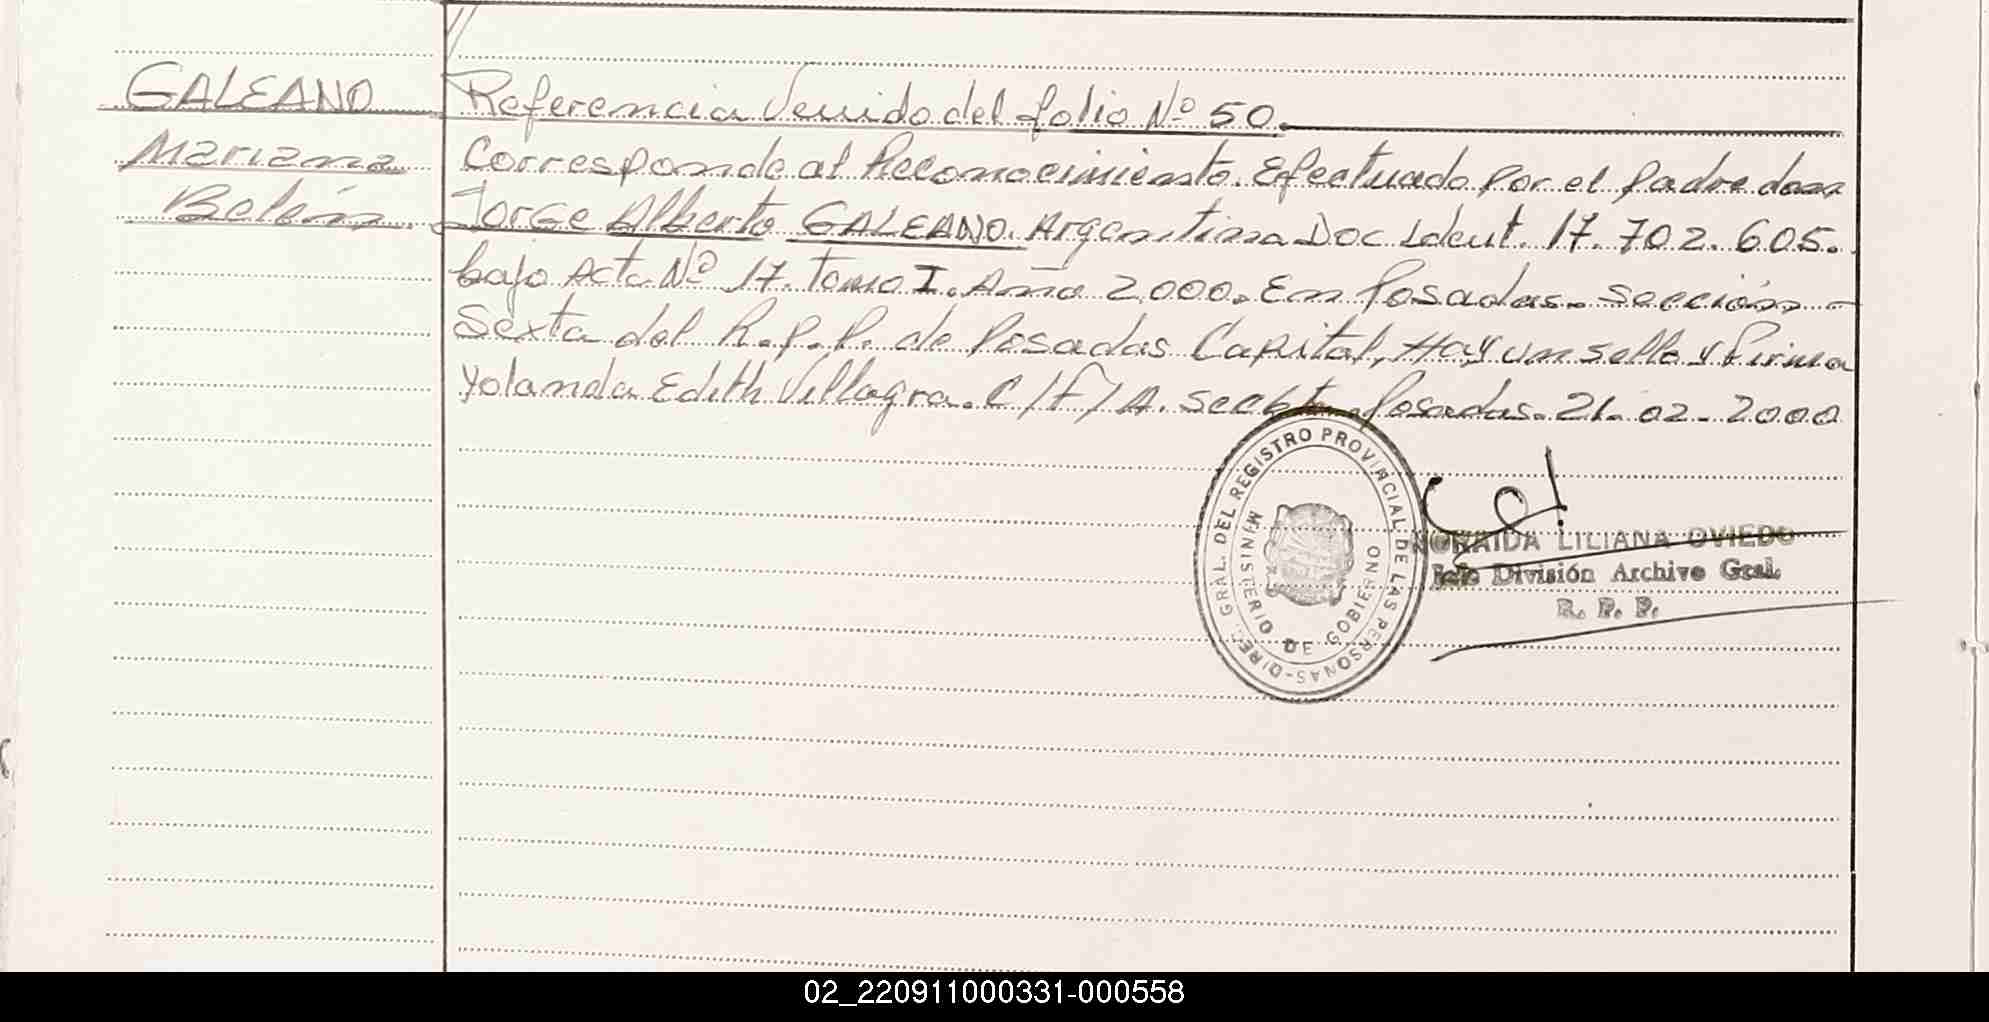 GALEANO
Mariana
Belén
Referencia Venido del folio Nº 50.
Corresponde al Reconocimiento. Efectuado por el padre don
Jorge Alberto GALEANO. Argentina Doc Ident. 17.702.605.
bajo Acta Nº 17. Tomo I. Año 2000. En Posadas. Sección -
Sexta del R.P.P. de Posadas Capital, Hay un sello y firma
Yolanda Edith Villagra. C/F/A. Posadas. 21-02-2000
DIREC. GRAL. DEL REGISTRO PROVINCIAL DE LAS PERSONAS-
MINISTERIO DE GOBIERNO
NORAIDA LILIANA OVIEDO
Jefe División Archivo Gral.
R. P. P.
02_220911000331-000558